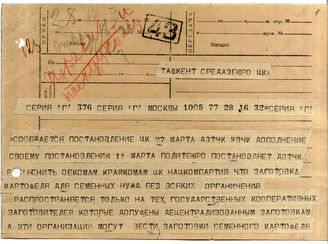 ПЕРЕДАЧА
43
ТАШКЕНТ СРЕДАЗБЮРО ЦК=
СЕРИЯ =Г/ 376 СЕРИЯ =Г/ МОСКВЫ 1005 77 28 16 32= СЕРИЯ =Г/
=СООБЩАЕТСЯ ПОСТАНОВЛЕНИЕ ЦК 27 МАРТА АВТЧК КВЧК ДОПОЛНЕНИЕ
СВОЕМУ ПОСТАНОВЛЕНИЮ 11 МАРТА ПОЛИТБЮРО ПОСТАНОВЛЯЕТ АВТЧК
РАЗ'ЯСНИТЬ ОБКОМАМ КРАЙКОМАМ ЦК НАЦКОМПАРТИЙ ЧТО ЗАГОТОВКА
КАРТОФЕЛЯ ДЛЯ СЕМЕННЫХ НУЖД БЕЗ ВСЯКИХ ОГРАНИЧЕНИЙ
РАСПРОСТРАНЯЕТСЯ ТОЛЬКО НА ТЕХ ГОСУДАРСТВЕННЫХ КООПЕРАТИВНЫХ
ЗАГОТОВИТЕЛЕЙ КОТОРЫЕ ДОПУЩЕНЫ ДЕЦЕНТРАЛИЗОВАННЫМ ЗАГОТОВКАМ
А ЭТИ ОРГАНИЗАЦИИ МОГУТ ВЕСТИ ЗАГОТОВКИ СЕМЕННОГО КАРТОФЕЛЯ